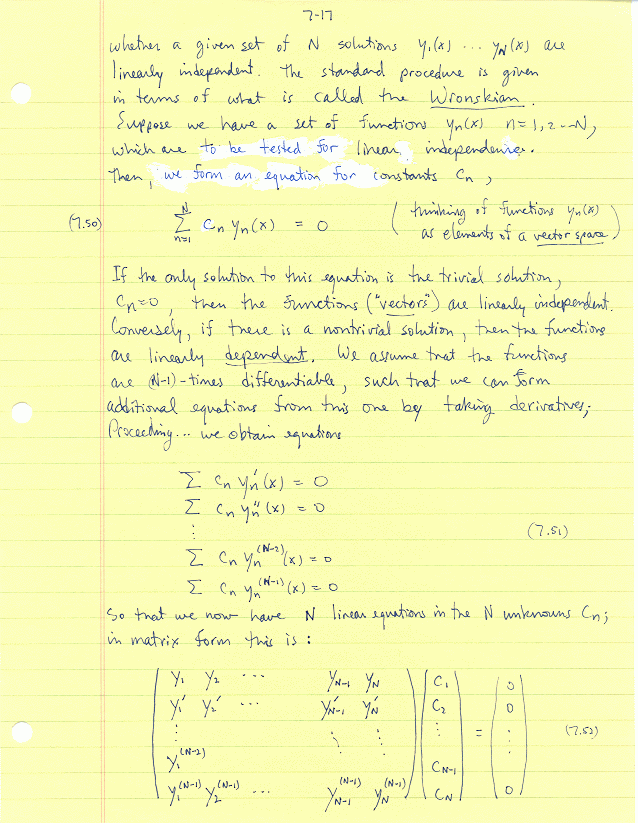 7-17
whether a given set of N solutions y₁(x) ··· y_N(x) are
linearly independent. The standard procedure is given
in terms of what is called the Wronskian.
Suppose we have a set of functions yₙ(x) n=1,2--N,
which are to be tested for linear independence.
Then, we form an equation for constants Cₙ,
(7.50) ∑_{n=1}^{N} Cₙ yₙ(x) = 0 (thinking of functions yₙ(x)
as elements of a vector space)
If the only solution to this equation is the trivial solution,
Cₙ=0, then the functions ("vectors") are linearly independent.
Conversely, if there is a nontrivial solution, then the functions
are linearly dependent. We assume that the functions
are (N-1)-times differentiable, such that we can form
additional equations from this one by taking derivatives;
Proceeding... we obtain equations
∑ Cₙ yₙ'(x) = 0
∑ Cₙ yₙ''(x) = 0
⋮ (7.51)
∑ Cₙ yₙ^(N-2)(x) = 0
∑ Cₙ yₙ^(N-1)(x) = 0
So that we now have N linear equations in the N unknowns Cₙ;
in matrix form this is:
y₁ y₂ ··· y_{N-1} y_N C₁ 0
y₁' y₂' ··· y'_{N-1} y'_N C₂ 0
⋮ ⋮ ⋮ ⋮ = ⋮ (7.52)
y₁^(N-2) C_{N-1}
y₁^(N-1) y₂^(N-1) ··· y_{N-1}^(N-1) y_N^(N-1) C_N 0